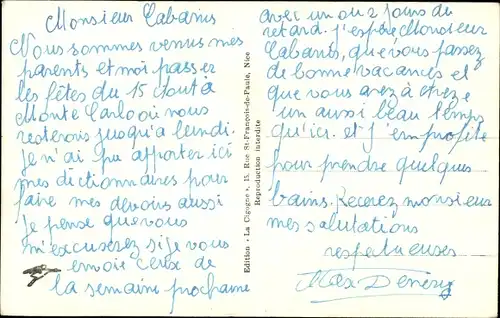 Monsieur Cabanis
Nous sommes venus mes
parents et moi passer
les fêtes du 15 Aout à
Monte Carlo où nous
resterons jusqu'à lundi.
Je n'ai pu apporter ici
mes dictionnaires pour
faire mes devoirs aussi
je pense que vous
m'excuserez si je vous
envoie ceux de
la semaine prochaine
Edition "La Cigogne", 15, Rue St-François-de-Paule, Nice
Reproduction interdite
avec un ou 2 jours de
retard. J'espère, Monsieur
Cabanis, que vous passez
de bonne vacances et
que vous avez à
un aussi beau temps
qu'ici. et j'en profite
pour prendre quelques
bains. Recevez monsieur
mes salutations
respectueuses
Max